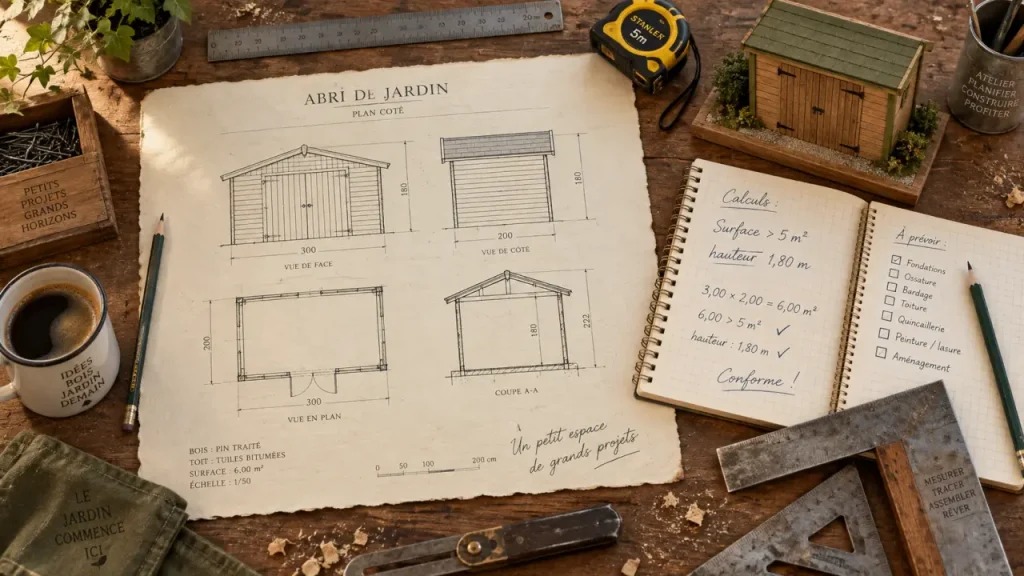 ABRI DE JARDIN
PLAN COTÉ
180
300
VUE DE FACE
180
200
VUE DE COTÉ
200
300
VUE EN PLAN
180
222
COUPE A-A
BOIS : PIN TRAITÉ
TOIT : TUILES BITUMÉES
SURFACE : 6,00 m²
ÉCHELLE : 1/50
0 50 100 200 cm
Un petit espace
de grands projets
STANLEX
5m
ATELIER
PLANIFIER
CONSTRUIRE
PROFITER
PETITS
PROJETS
GRANDS
HORIZONS
IDÉES
BOIS
JARDIN
DEMAIN
LE
JARDIN
COMMENCE
ICI
Calculs :
Surface > 5 m²
hauteur 1,80 m
3,00 x 2,00 = 6,00 m²
6,00 > 5 m² ✓
hauteur : 1,80 m ✓
Conforme !
À prévoir :
Fondations
Ossature
Bardage
Toiture
Quincaillerie
Peinture / lasure
Aménagement
MESURER
TRACER
ASSEMBLER
RÊVER